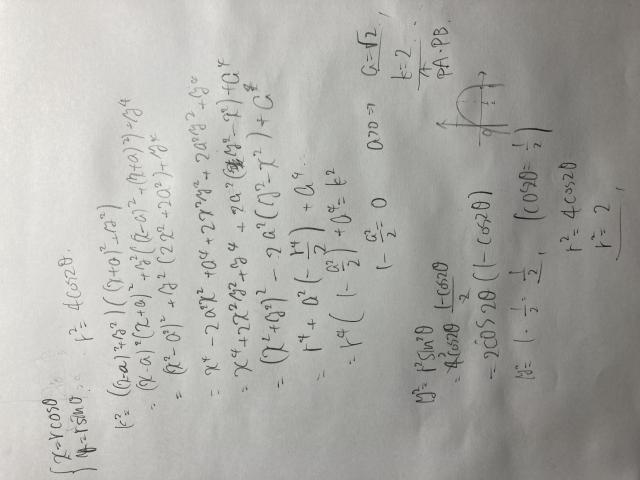 { x = r cosθ
y = r sinθ r² = 4cos2θ.
k² = ((x-a)²+y²)((x+a)²+y²)
= (x-a)²(x+a)² + y²((x-a)²+(x+a)²)+y⁴
= (x²-a²)² + y²(2x²+2a²)+y⁴
= x⁴-2a²x²+a⁴+2x²y²+2a²y²+y⁴
= x⁴+2x²y²+y⁴+2a²(y²-x²)+a⁴
= (x²+y²)² - 2a²(y²-x²)+a⁴
= r⁴+a²(-r⁴/2)+a⁴
= r⁴(1-a²/2)+a⁴=k²
1-a²/2=0 a>0⇒ a=√2
k=2
↑
PA·PB.
y²=r²sin²θ
= 4cos2θ (1-cos2θ)/2
= 2cos2θ(1-cos2θ)
y² = 1·1/2=1/2, (cos2θ=1/2)
r²=4cos2θ
r²=2,